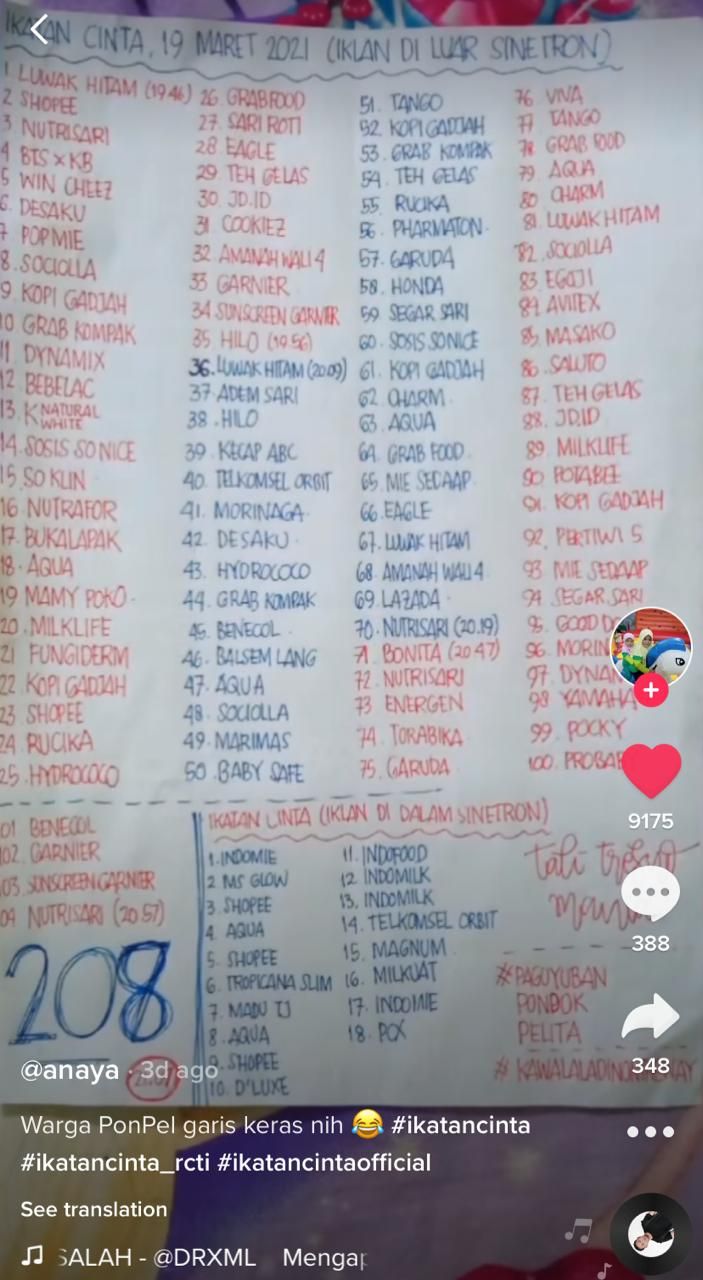 IKATAN CINTA, 19 MARET 2021 (IKLAN DI LUAR SINETRON)
1. LUWAK HITAM (19.46)
2 SHOPEE
3 NUTRISARI
4 BTS X KB
5 WIN CHEEZ
6. DESAKU
7 POPMIE
8. SOCIOLLA
9 KOPI GADJAH
10 GRAB KOMPAK
11. DYNAMIX
12 BEBELAC
13. K NATURAL WHITE
14. SOSIS SO NICE
15. SO KLIN
16 NUTRAFOR
17. BUKALAPAK
18. AQUA
19 MAMY POKO
20. MILKLIFE
21 FUNGIDERM
22 KOPI GADJAH
23 SHOPEE
24 RUCIKA
25. HYDROCOCO
26. GRABFOOD
27. SARI ROTI
28 EAGLE
29. TEH GELAS
30. JD.ID
31. COOKIEZ
32. AMANAH WALI 4
33 GARNIER
34 SUNSCREEN GARNIER
35 HILO (19.56)
36. LUWAK HITAM (20.09)
37 ADEM SARI
38. HILO
39. KECAP ABC
40. TELKOMSEL ORBIT
41. MORINAGA
42. DESAKU
43. HYDROCOCO
44. GRAB KOMPAK
45. BENECOL
46. BALSEM LANG
47. AQUA
48. SOCIOLLA
49. MARIMAS
50 BABY SAFE
51. TANGO
52. KOPI GADJAH
53. GRAB KOMPAK
54. TEH GELAS
55. RUCIKA
56. PHARMATON
57. GARUDA
58. HONDA
59 SEGAR SARI
60. SOSIS SONICE
61. KOPI GADJAH
62. CHARM
63. AQUA
64. GRAB FOOD
65. MIE SEDAAP
66. EAGLE
67. LUWAK HITAM
68. AMANAH WALI 4
69. LAZADA
70. NUTRISARI (20.19)
71. BONITA (20.47)
72. NUTRISARI
73 ENERGEN
74. TORABIKA
75. GARUDA
76. VIVA
77 TANGO
78 GRAB FOOD
79. AQUA
80 CHARM
81. LUWAK HITAM
82. SOCIOLLA
83. EGOJI
84. AVITEX
85. MASAKO
86. SALUTO
87. TEH GELAS
88. JD.ID
89 MILKLIFE
90 POTABEE
91. KOPI GADJAH
92. PERTIWI 5
93 MIE SEDAAP
94 SEGAR SARI
95. GOOD
96. MORIN
97. DYNAM
98 YAMAHA
99. POCKY
100. PROBA
01 BENECOL
02. GARNIER
03. SUNSCREEN GARNIER
04 NUTRISARI (20.57)
208
IKATAN CINTA (IKLAN DI DALAM SINETRON)
1. INDOMIE
2. MS GLOW
3. SHOPEE
4. AQUA
5. SHOPEE
6. TROPICANA SLIM
7. MADU TJ
8. AQUA
9. SHOPEE
10. D'LUXE
11. INDOFOOD
12 INDOMILK
13. INDOMILK
14. TELKOMSEL ORBIT
15. MAGNUM
16. MILKUAT
17. INDOMIE
18. POX
tali
#PAGUYUBAN
PONDOK
PELITA
9175
388
348
@anaya · 3d ago
Warga PonPel garis keras nih 😂 #ikatancinta
#ikatancinta_rcti #ikatancintaofficial
See translation
SALAH - @DRXML Mengap